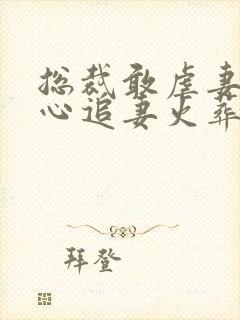 总裁敢虐妻
心追妻火葬
拜登